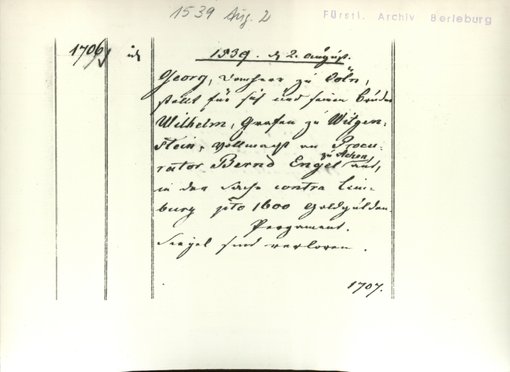 1539 Aug. 2
Fürstl. Archiv Berleburg
1706
1539. d. 2. August.
Georg, Domherr zu Cöln,
stellt für sich und seinen Bruder
Wilhelm, Grafen zu Witgen-
stein, Vollmacht an Procu-
rator Bernd Engel zu Achen aus,
in der Sache contra Lim-
burg pto 1600 Goldgülden.
Pergament.
Siegel sind verloren.
1707.